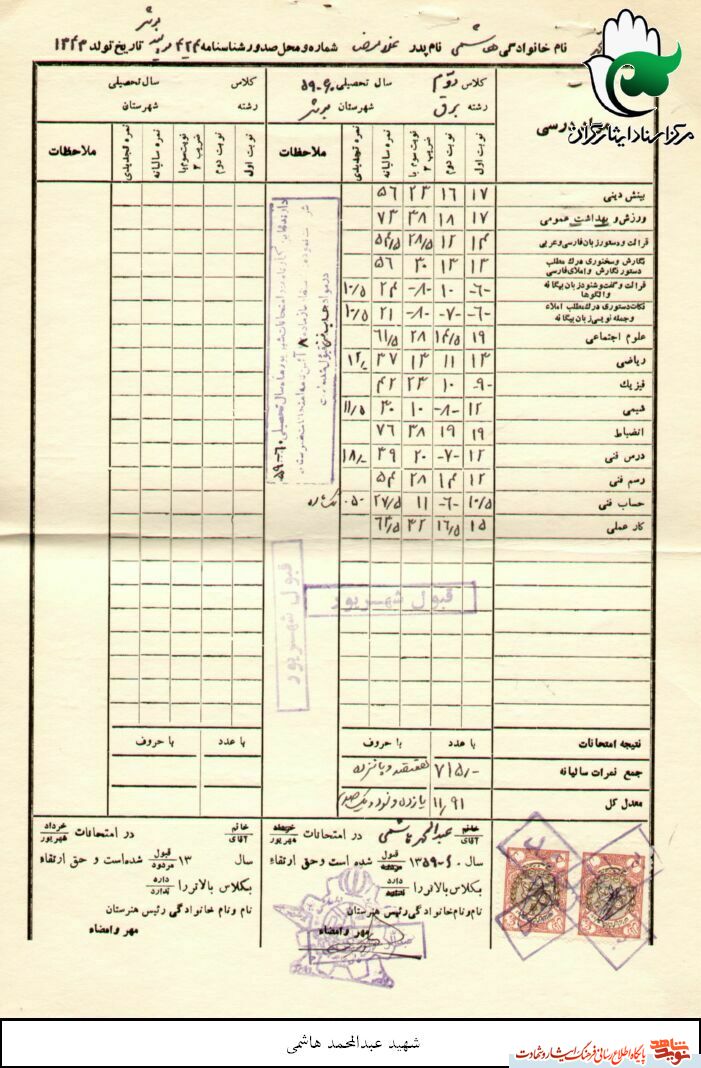 نام خانوادگی هاشمی نام پدر غلامرضا شماره و محل صدور شناسنامه تاریخ تولد ۱۳۴۳
مرکز اسناد ایثارگران
کلاس دوم سال تحصیلی ۶۰-۵۹ کلاس سال تحصیلی
رشته برق شهرستان رشته شهرستان
نوبت اول نوبت دوم نوبت سوم با ضریب ۲ نمره سالیانه نمره تجدیدی ملاحظات نوبت اول نوبت دوم نوبت سوم با ضریب ۲ نمره سالیانه نمره تجدیدی ملاحظات
بینش دینی ۱۷ ۱۶ ۲۳ ۵۶
ورزش و بهداشت عمومی ۱۷ ۱۸ ۳۸ ۷۳
قرائت و دستور زبان فارسی و عربی ۱۴ ۱۲ ۲۸/۵ ۵۴/۵
نگارش و سخنوری درک مطلب دستور نگارش و املاء فارسی ۱۳ ۱۳ ۳۰ ۵۶
قرائت و گفت و شنود زبان بیگانه و الگوها -۶- ۱۰ -۸- ۲۴ ۱۰/۵
نکات دستوری درک مطلب املاء و جمله نویسی زبان بیگانه -۶- -۷- -۸- ۲۱ ۱۰/۵
علوم اجتماعی ۱۹ ۱۴/۵ ۲۸ ۶۱/۵
ریاضی ۱۳ ۱۱ ۱۳ ۳۷ ۱۲/-
فیزیک -۹- ۱۰ ۲۳ ۴۲
شیمی ۱۲ -۸- ۱۰ ۳۰ ۱۱/۵
انضباط ۱۹ ۱۹ ۳۸ ۷۶
درس فنی ۱۲ -۷- ۲۰ ۳۹ ۱۸/-
رسم فنی ۱۲ ۱۴ ۲۸ ۵۴
حساب فنی ۱۰/۵ -۶- ۱۱ ۲۷/۵ ۰۵۰ تک ماده
کار عملی ۱۵ ۱۶/۵ ۳۲ ۶۳/۵
قبول شهریور
قبول شهریور
نتیجه امتحانات با عدد با حروف با عدد با حروف
جمع نمرات سالیانه ۷۱۵/- هفتصد و پانزده
معدل کل ۱۱/۹۱ یازده و نود و یک صدم
خانم آقای عبدالمحمد هاشمی در امتحانات خرداد شهریور
سال ۶۰-۱۳۵۹ قبول مردود شده است و حق ارتقاء
بکلاس بالاتر را دارد ندارد
نام و نام خانوادگی رئیس هنرستان
مهر و امضاء
خانم آقای در امتحانات خرداد شهریور
سال ۱۳ قبول مردود شده است و حق ارتقاء
بکلاس بالاتر را دارد ندارد
نام و نام خانوادگی رئیس هنرستان
مهر و امضاء
شهید عبدالمحمد هاشمی
نوید شاهد پایگاه اطلاع رسانی فرهنگ ایثار و شهادت